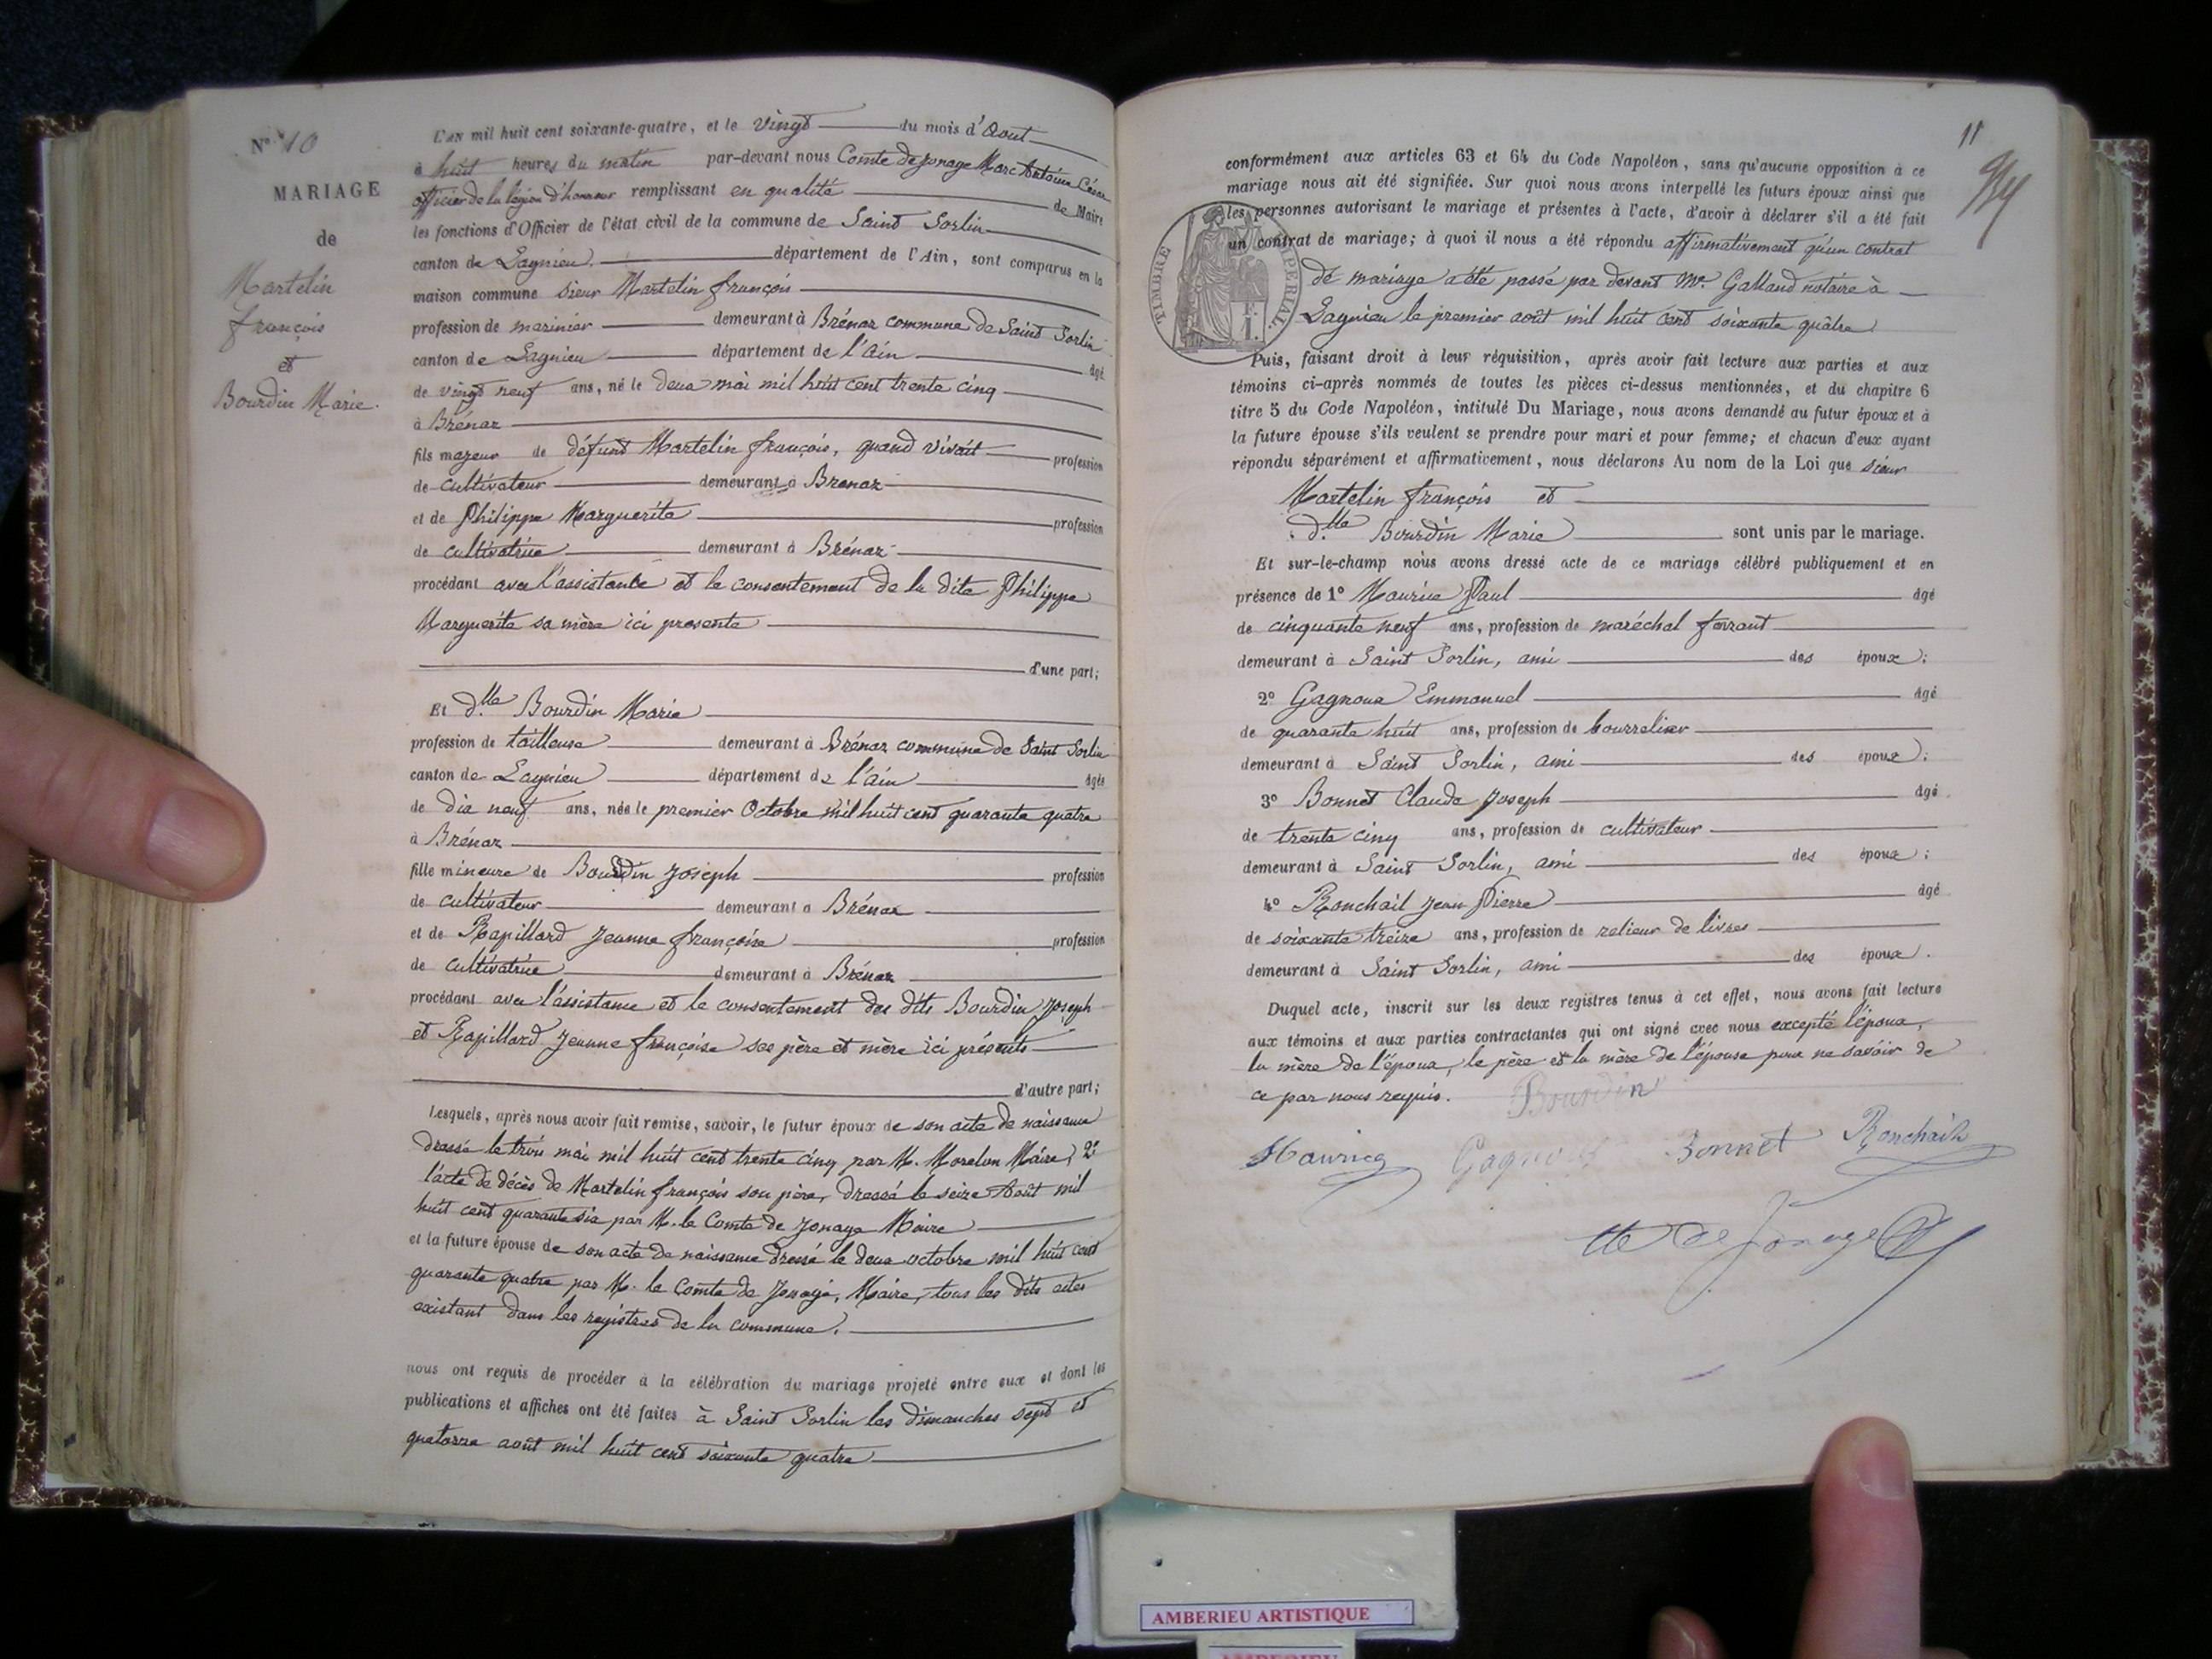 N° 10
MARIAGE
de
Martelin
françois
et
Bourdin Marie.
L'AN mil huit cent soixante-quatre, et le vingt du mois d'Aout
à huit heures du matin par-devant nous Comte de Jonage Marc Antoine César
officier de la légion d'honneur remplissant en qualité de Maire
les fonctions d'Officier de l'état civil de la commune de Saint Sorlin
canton de Lagnieu département de l'Ain, sont comparus en la
maison commune sieur Martelin françois
profession de marinier demeurant à Brénaz commune de Saint Sorlin
canton de Lagnieu département de l'Ain âgé
de vingt neuf ans, né le deux mai mil huit cent trente cinq
à Brénaz
fils majeur de défunt Martelin françois, quand vivait profession
de cultivateur demeurant à Brenaz
et de Philippe Marguerite profession
de cultivatrice demeurant à Brénaz
procédant avec l'assistance et le consentement de la dite Philippe
Marguerite sa mère ici presente
d'une part;
Et dlle Bourdin Marie
profession de tailleuse demeurant à Brénaz commune de Saint Sorlin
canton de Lagnieu département de l'ain âgée
de dix neuf ans, née le premier Octobre mil huit cent quarante quatre
à Brénaz
fille mineure de Bourdin Joseph profession
de cultivateur demeurant à Brénaz
et de Rapillard Jeanne françoise profession
de cultivatrice demeurant à Brénaz
procédant avec l'assistance et le consentement des dits Bourdin Joseph
et Rapillard Jeanne françoise ses père et mère ici présents
d'autre part;
Lesquels, après nous avoir fait remise, savoir, le futur époux de son acte de naissance
dressé le trois mai mil huit cent trente cinq par M. Morelon Maire, 2°
l'acte de décès de Martelin françois son père, dressé le seize Août mil
huit cent quarante six par M. le Comte de Jonage Maire
et la future épouse de son acte de naissance dressé le deux octobre mil huit cent
quarante quatre par M. le Comte de Jonage, Maire, tous les dits actes
existant dans les registres de la commune.
nous ont requis de procéder à la célébration du mariage projeté entre eux et dont les
publications et affiches ont été faites à Saint Sorlin les dimanches sept et
quatorze août mil huit cent soixante quatre
11
conformément aux articles 63 et 64 du Code Napoléon, sans qu'aucune opposition à ce
mariage nous ait été signifiée. Sur quoi nous avons interpellé les futurs époux ainsi que
les personnes autorisant le mariage et présentes à l'acte, d'avoir à déclarer s'il a été fait
un contrat de mariage; à quoi il nous a été répondu affirmativement qu'un contrat
de mariage a été passé par devant Me. Galland notaire à
Lagnieu le premier août mil huit cent soixante quatre
TIMBRE IMPERIAL.
Puis, faisant droit à leur réquisition, après avoir fait lecture aux parties et aux
témoins ci-après nommés de toutes les pièces ci-dessus mentionnées, et du chapitre 6
titre 5 du Code Napoléon, intitulé Du Mariage, nous avons demandé au futur époux et à
la future épouse s'ils veulent se prendre pour mari et pour femme; et chacun d'eux ayant
répondu séparément et affirmativement, nous déclarons Au nom de la Loi que sieur
Martelin françois et
dlle Bourdin Marie sont unis par le mariage.
Et sur-le-champ nous avons dressé acte de ce mariage célébré publiquement et en
présence de 1° Maurice Paul âgé
de cinquante neuf ans, profession de maréchal ferrant
demeurant à Saint Sorlin, ami des époux;
2° Gagnoux Emmanuel âgé
de quarante huit ans, profession de bourrelier
demeurant à Saint Sorlin, ami des époux;
3° Bonnet Claude Joseph âgé
de trente cinq ans, profession de cultivateur
demeurant à Saint Sorlin, ami des époux;
4° Ronchail Jean Pierre âgé
de soixante treize ans, profession de relieur de livres
demeurant à Saint Sorlin, ami des époux.
Duquel acte, inscrit sur les deux registres tenus à cet effet, nous avons fait lecture
aux témoins et aux parties contractantes qui ont signé avec nous excepté l'époux,
la mère de l'époux, le père et la mère de l'épouse pour ne savoir de
ce par nous requis. Bourdin
Mauricq Gagnoux Bonnet Ronchail
Cte de Jonage
AMBERIEU ARTISTIQUE
AMBERIEU